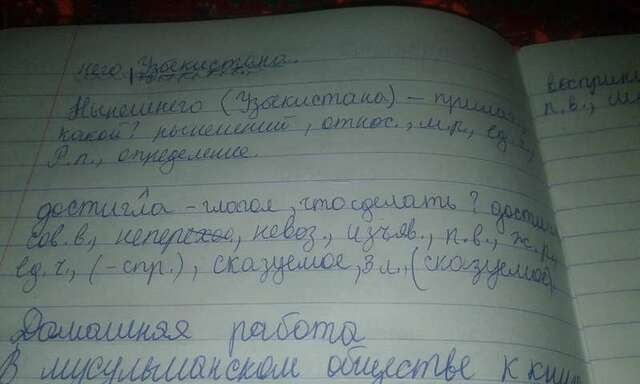 него Узбекистана.
Нынешнего (Узбекистана) – прилаг.,
какой? нынешний, относ., м.р., ед.ч.,
Р.п., определение.
достигла – глагол, что сделать?
сов. в., неперех., невоз., изъяв., п.в., ж.р.,
ед.ч., (-спр.), сказуемое, 3 л. (сказуемое)
Домашная работа
В мусульманском обществе к
п.в.,